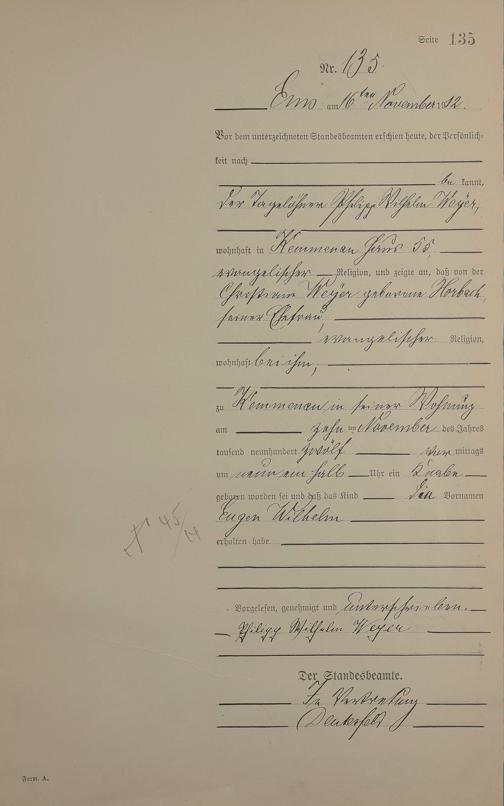 Seite 135
Nr. 135.
Ems am 16ten November 12.
Vor dem unterzeichneten Standesbeamten erschien heute, der Persönlich-
keit nach
be kannt,
der Tagelöhner Philipp Wilhelm Weyer,
wohnhaft in Kemmenau Haus 55,
evangelischer Religion, und zeigte an, daß von der
Christiane Weyer geborene Horbach,
seiner Ehefrau,
evangelischer Religion,
wohnhaft bei ihm,
zu Kemmenau in seiner Wohnung
am zehnten November des Jahres
tausend neunhundert zwölf vor mittags
um neun ein halb Uhr ein Knabe
geboren worden sei und daß das Kind die Vornamen
Eugen Wilhelm
erhalten habe.
Vorgelesen, genehmigt und unterschrieben.
Philipp Wilhelm Weyer
Der Standesbeamte.
In Vertretung
Form. A.